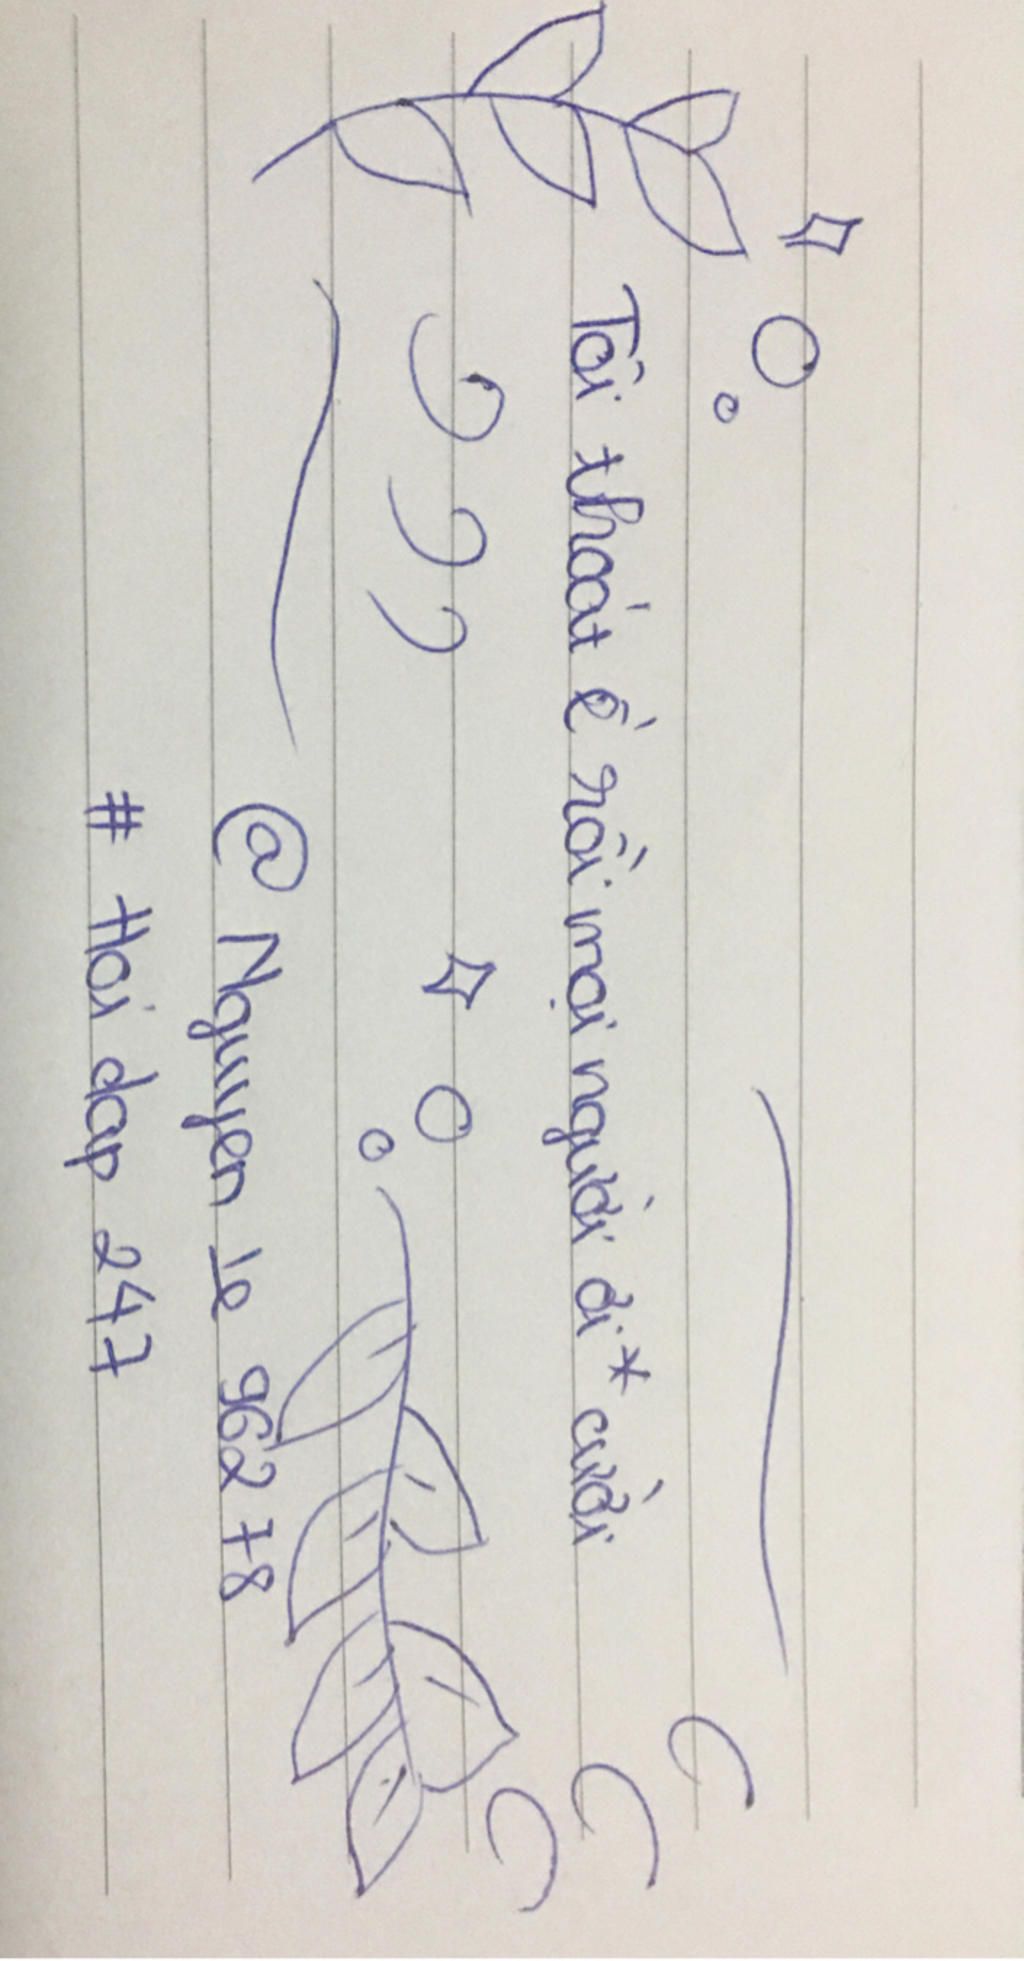 Tôi thoát ế rồi mọi người ơi * cười
@ Nguyen le 96278
# Hoi dap 247